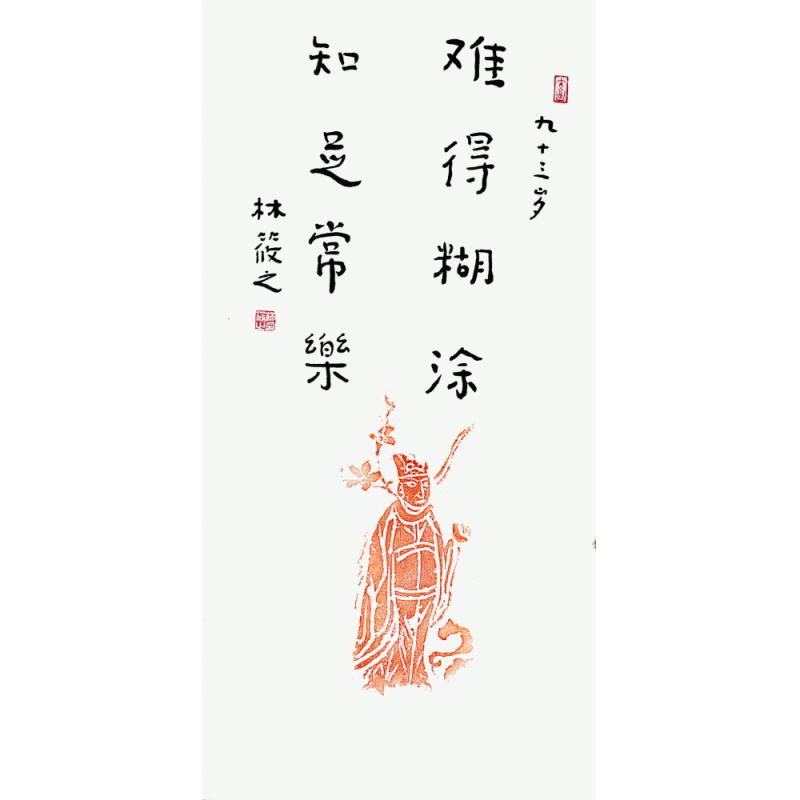 九十三岁
难得糊涂
知足常樂
林筱之